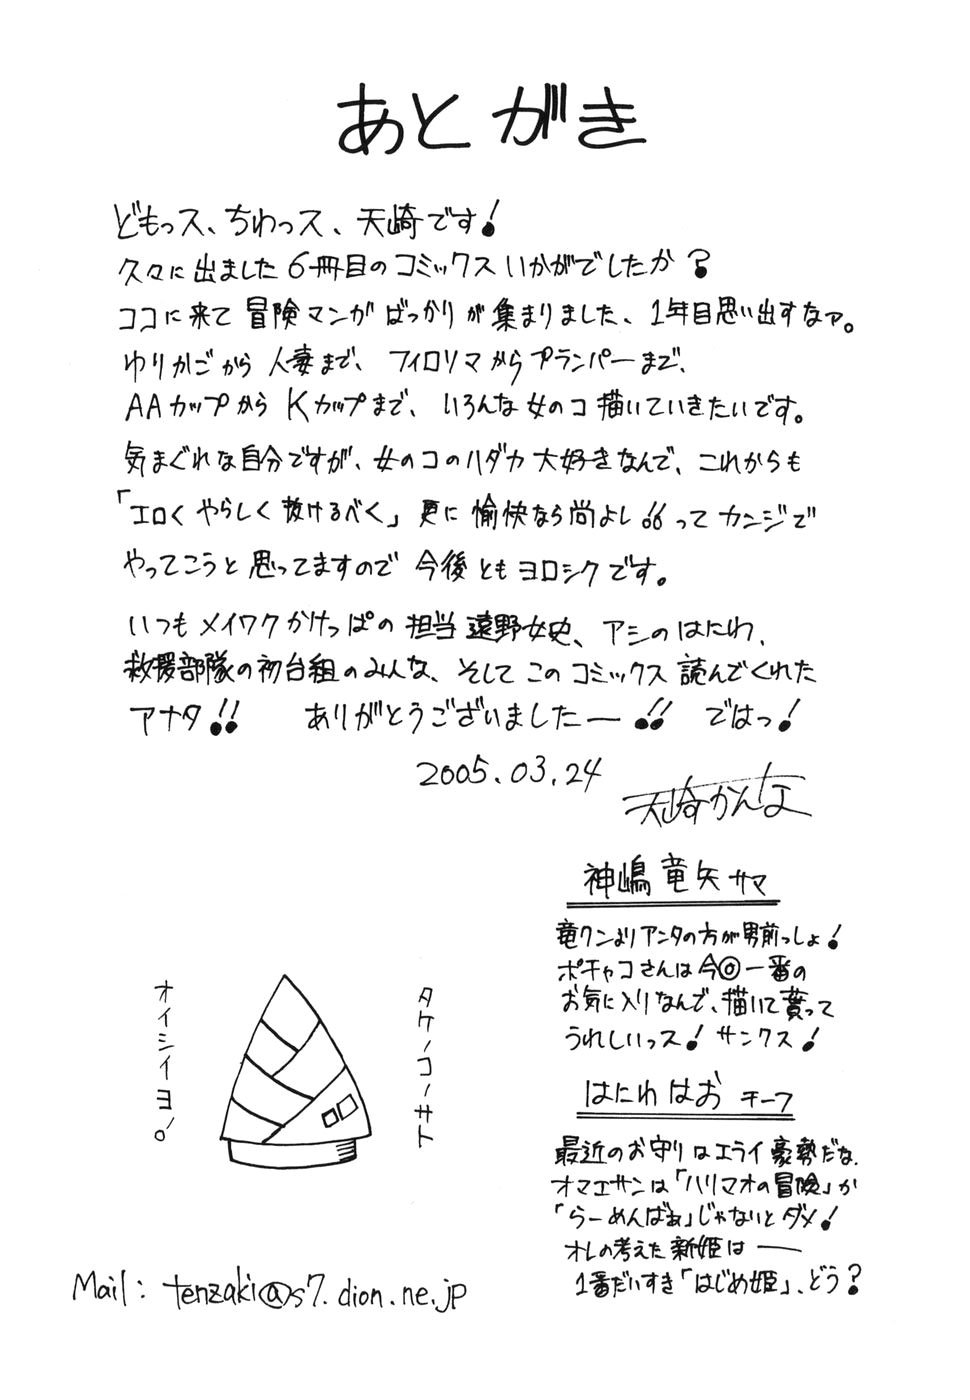 あとがき
どもっス、ちわっス、天崎です!
久々に出ました6冊目のコミックスいかがでしたか?
ココに来て冒険マンガばっかりが集まりました、1年目思い出すなァ。
ゆりかごから人妻まで、フィロリマからプランパーまで、
AAカップからKカップまで、いろんな女のコ描いていきたいです。
気まぐれな自分ですが、女のコのハダカ大好きなんで、これからも
「エロくやらしく抜けるべく」更に愉快なら尚よし!!ってカンジで
やってこうと思ってますので今後ともヨロシクです。
いつもメイワクかけっぱの担当遠野女史、アシのはにわ、
救援部隊の初台組のみんな、そしてこのコミックス読んでくれた
アナタ!! ありがとうございましたー!! ではっ!
2005.03.24
天崎かんな
神嶋竜矢サマ
竜クンよりアンタの方が男前っしょ!
ポチャコさんは今◎一番の
お気に入りなんで、描いて貰って
うれしいっス!サンクス!
はにわはお チーフ
最近のお守りはエライ豪勢だな.
オマエサンは「ハリマオの冒険」か
「らーめんばぁ」じゃないとダメ!
オレの考えた新姫は――
1番だいすき「はじめ姫」、どう?
タケノコノサト
オイシイヨ。
Mail: tenzaki@s7.dion.ne.jp